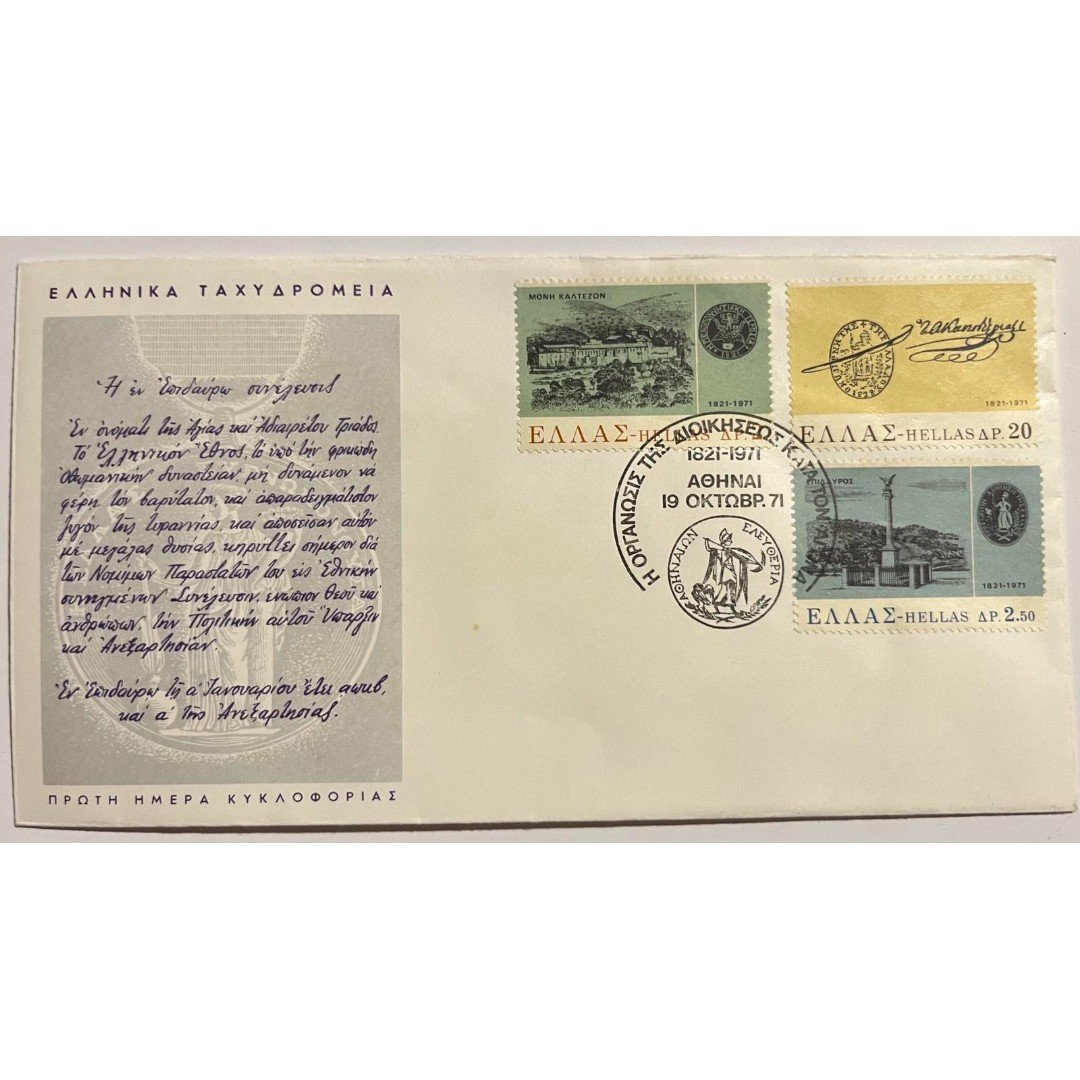 ΕΛΛΗΝΙΚΑ ΤΑΧΥΔΡΟΜΕΙΑ
Ἡ ἐν Ἐπιδαύρῳ συνέλευσις
Ἐν ὀνόματι τῆς Ἁγίας καὶ Ἀδιαιρέτου Τριάδος.
Τὸ Ἑλληνικὸν Ἔθνος, τὸ ὑπὸ τὴν φρικώδη
Ὀθωμανικὴν δυναστείαν, μὴ δυνάμενον νὰ
φέρῃ τὸν βαρύτατον, καὶ ἀπαραδειγμάτιστον
ζυγὸν τῆς τυραννίας, καὶ ἀποσεῖσαν αὐτὸν
μὲ μεγάλας θυσίας, κηρύττει σήμερον διὰ
τῶν Νομίμων Παραστατῶν του εἰς Ἐθνικὴν
συνηγμένων Συνέλευσιν, ἐνώπιον Θεοῦ καὶ
ἀνθρώπων, τὴν Πολιτικὴν αὐτοῦ Ὕπαρξιν
καὶ Ἀνεξαρτησίαν.
Ἐν Ἐπιδαύρῳ τῇ α΄ Ἰανουαρίου Ἔτει αωκβ,
καὶ α΄ τῆς Ἀνεξαρτησίας.
ΠΡΩΤΗ ΗΜΕΡΑ ΚΥΚΛΟΦΟΡΙΑΣ
ΜΟΝΗ ΚΑΛΤΕΖΩΝ
1821-1971
ΕΛΛΑΣ-HELLAS ΔΡ.
1821-1971
ΕΛΛΑΣ-HELLAS ΔΡ. 20
Η ΟΡΓΑΝΩΣΙΣ ΤΗΣ ΔΙΟΙΚΗΣΕΩΣ ΚΑΤΑ ΤΟΝ ΑΓΩΝΑ
1821-1971
ΑΘΗΝΑΙ
19 ΟΚΤΩΒΡ. 71
ΑΘΗΝΑΙΩΝ ΕΛΕΥΘΕΡΙΑ
ΕΠΙΔΑΥΡΟΣ
1821-1971
ΕΛΛΑΣ-HELLAS ΔΡ. 2.50